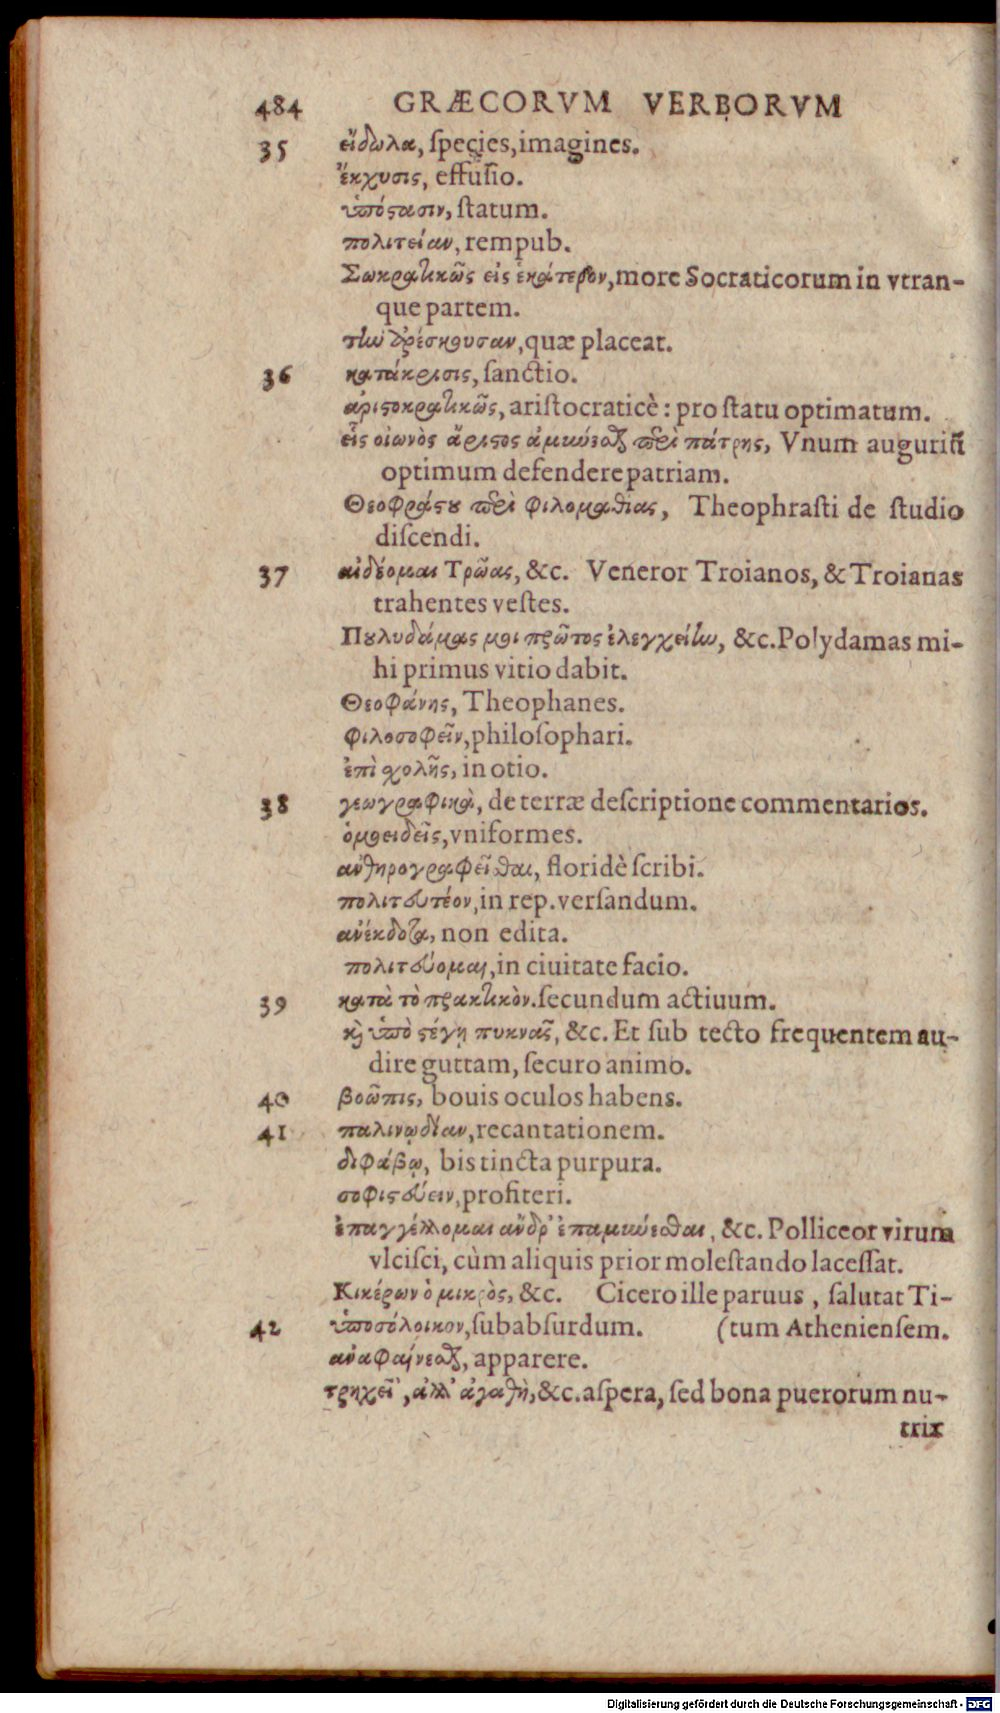 484 GRÆCORVM VERBORVM
35 εἴδωλα, ſpecies, imagines.
ἔκχυσις, effuſio.
ὑπόϛασιν, ſtatum.
πολιτείαν, rempub.
Σωκρατικῶς εἰς ἑκάτερον, more Socraticorum in vtran-
que partem.
τὴν ἀρέσκουσαν, quæ placeat.
36 κατάκρισις, ſanctio.
ἀριϛοκρατικῶς, ariſtocraticè : pro ſtatu optimatum.
εἷς οἰωνὸς ἄριϛος ἀμύνεσθαι περὶ πάτρης, Vnum auguriũ
optimum defendere patriam.
Θεοφράϛου περὶ φιλομαθίας, Theophraſti de ſtudio
diſcendi.
37 αἰδέομαι Τρῶας, &c. Veneror Troianos, & Troianas
trahentes veſtes.
Πουλυδάμας μοι πρῶτος ἐλεγχείην, &c. Polydamas mi-
hi primus vitio dabit.
Θεοφάνης, Theophanes.
φιλοσοφεῖν, philoſophari.
ἐπὶ σχολῆς, in otio.
38 γεωγραφικὰ, de terræ deſcriptione commentarios.
ὁμοειδεῖς, vniformes.
ἀνθηρογραφεῖσθαι, floridè ſcribi.
πολιτευτέον, in rep. verſandum.
ἀνέκδοτα, non edita.
πολιτεύομαι, in ciuitate facio.
39 κατὰ τὸ πρακτικὸν. ſecundum actiuum.
καὶ ὑπὸ ϛέγῃ πυκνᾶς, &c. Et ſub tecto frequentem au-
dire guttam, ſecuro animo.
40 βοῶπις, bouis oculos habens.
41 παλινῳδίαν, recantationem.
διφάβῳ, bis tincta purpura.
σοφιϛεύειν, profiteri.
ἐπαγγέλλομαι ἄνδρ' ἐπαμύνεσθαι, &c. Polliceor virum
vlciſci, cùm aliquis prior moleſtando laceſſat.
Κικέρων ὁ μικρὸς, &c. Cicero ille paruus, ſalutat Ti-
42 ὑποσόλοικον, ſubabſurdum. (tum Athenienſem.
ἀναφαίνεσθαι, apparere.
τρηχεῖ', ἀλλ' ἀγαθὴ, &c. aſpera, ſed bona puerorum nu-
trix
Digitalisierung gefördert durch die Deutsche Forschungsgemeinschaft - DFG